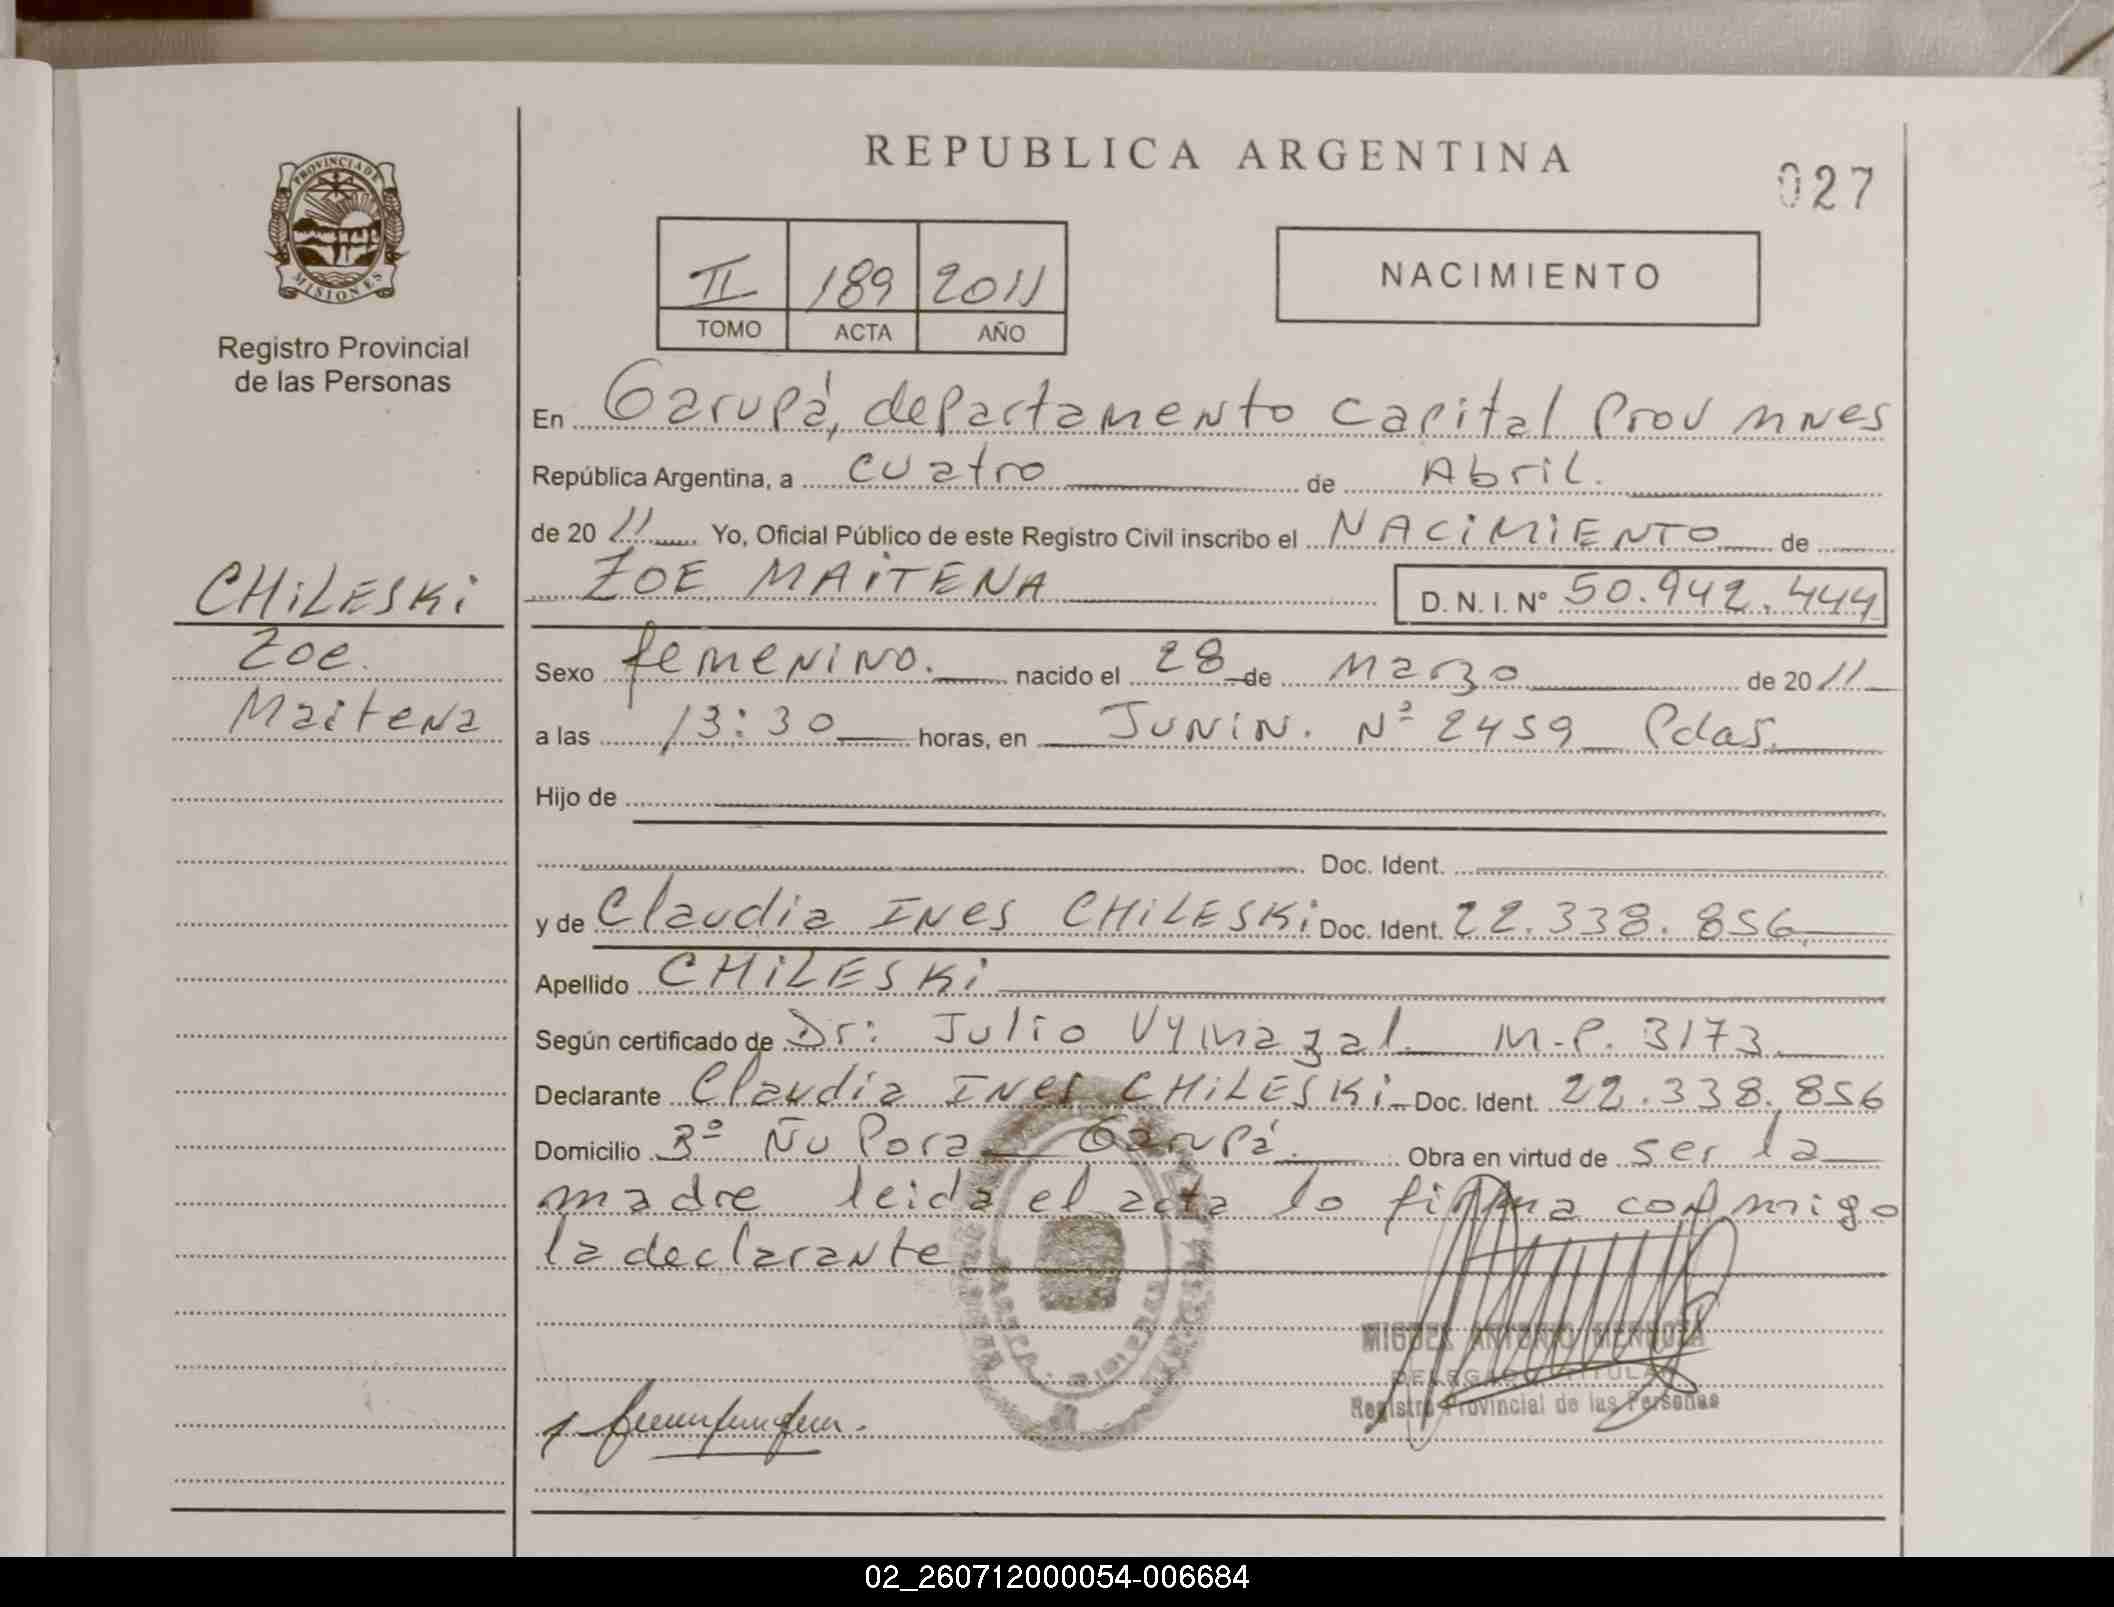 REPUBLICA ARGENTINA
027
PROVINCIA DE
MISIONES
Registro Provincial
de las Personas
II 189 2011
TOMO ACTA AÑO
NACIMIENTO
En Garupá, departamento Capital Prov Mnes
República Argentina, a cuatro de Abril.
de 20 11 Yo, Oficial Público de este Registro Civil inscribo el NACIMIENTO de
CHILESKI
Zoe.
Maitena
ZOE MAITENA D. N. I. Nº 50.942.444
Sexo femenino. nacido el 28 de Marzo de 20 11
a las 13:30 horas, en JUNIN. Nº 2459 Pdas.
Hijo de
Doc. Ident.
y de Claudia INES CHILESKI Doc. Ident. 22.338.856
Apellido CHILESKI
Según certificado de Dr: Julio Vymazal. M.P. 3173
Declarante Claudia INES CHILESKI Doc. Ident. 22.338.856
Domicilio Bº Ñu Pora Garupá. Obra en virtud de ser la
madre leida el acta lo firma conmigo
la declarante
MIGUEL ANTONIO MENDOZA
DELEGADO TITULAR
Registro Provincial de las Personas
02_260712000054-006684